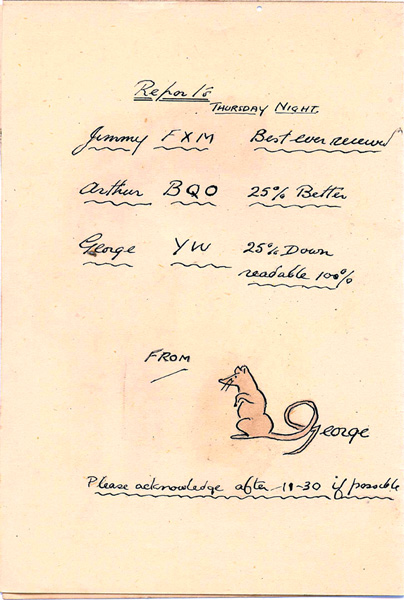 Reports
THURSDAY NIGHT.
Jimmy FXM Best ever received
Arthur BQO 25% Better
George YW 25% Down
readable 100%
FROM
George
Please acknowledge after 11-30 if possible